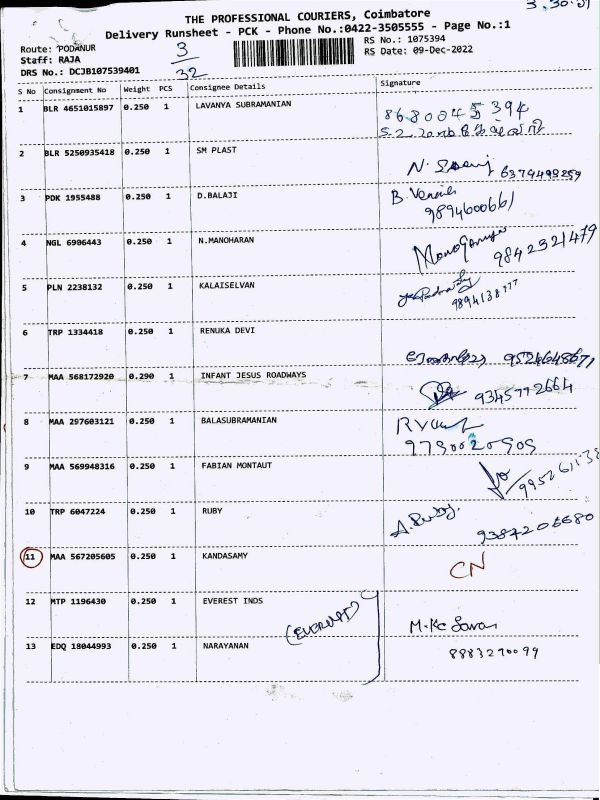 THE PROFESSIONAL COURIERS, Coimbatore
Delivery Runsheet - PCK - Phone No.:0422-3505555 - Page No.:1
Route: PODANUR
Staff: RAJA
DRS No.: DCJB107539401
3/32
RS No.: 1075394
RS Date: 09-Dec-2022
S No Consignment No Weight PCS Consignee Details Signature
1 BLR 4651015897 0.250 1 LAVANYA SUBRAMANIAN
2 BLR 5250935418 0.250 1 SM PLAST 6374498259
3 PDK 1955488 0.250 1 D.BALAJI 9894600661
4 NGL 6906443 0.250 1 N.MANOHARAN 9842321479
5 PLN 2238132 0.250 1 KALAISELVAN
6 TRP 1334418 0.250 1 RENUKA DEVI
7 MAA 568172920 0.290 1 INFANT JESUS ROADWAYS 9345772664
8 MAA 297603121 0.250 1 BALASUBRAMANIAN
9 MAA 569948316 0.250 1 FABIAN MONTAUT
10 TRP 6047224 0.250 1 RUBY A.Ruby. 9387206680
11 MAA 567205605 0.250 1 KANDASAMY CN
12 MTP 1196430 0.250 1 EVEREST INDS
13 EDQ 18044993 0.250 1 NARAYANAN 8883270099